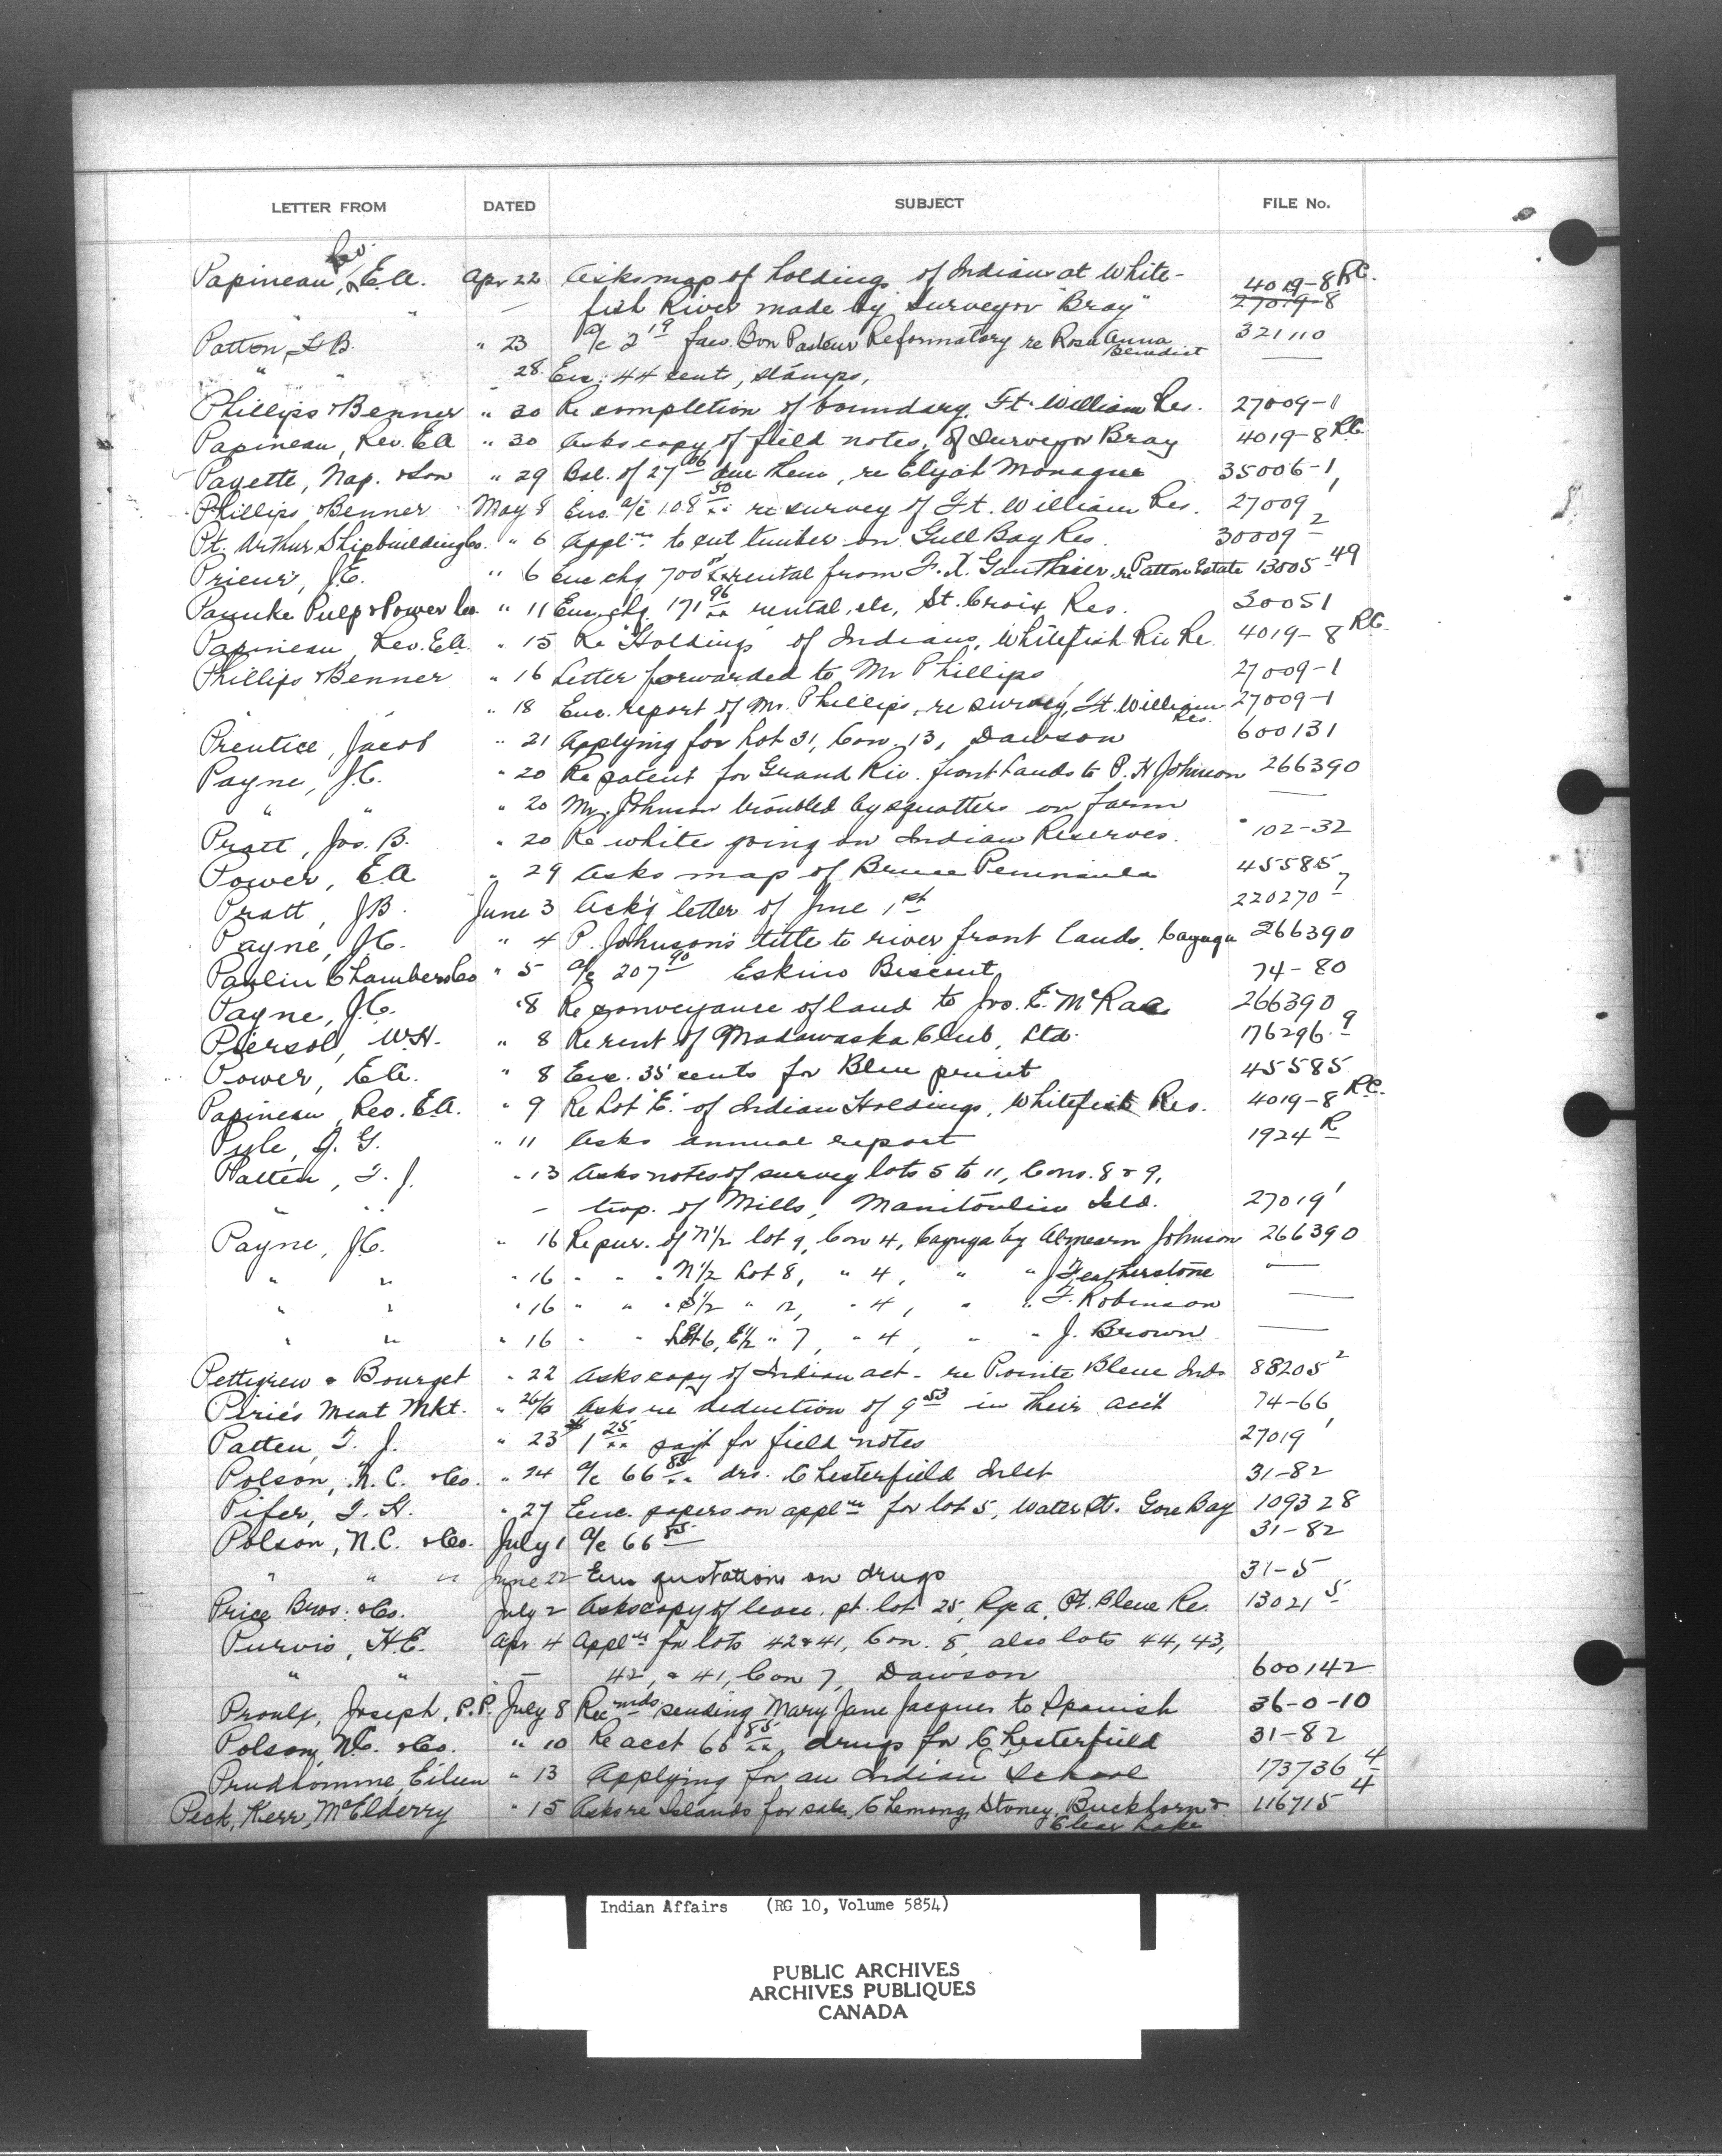 LETTER FROM DATED SUBJECT FILE No.
Rev.
Papineau, E.A. Apr 22 Asks map of holdings of Indians at White- 4019-8 R.C.
" " — fish River made by Surveyor "Bray" 27019-8
Patton, H B. " 23 a/c 2 19 fav. Bon Pasteur Reformatory re Rosa Anna Benedict 321110
" " 28 Enc. 44 cents, stamps, —
Phillips & Benner " 30 Re completion of boundary, Ft. William Res. 27009-1
Papineau, Rev. E A " 30 Asks copy of field notes, of Surveyor Bray 4019-8 R.C.
Payette, Nap. & Son " 29 Bal. of 27 06 due them, re Elijah Monague 35006-1
Phillips & Benner May 8 Enc. a/c 108 50 re survey of Ft. William Res. 27009 1
Pt. Arthur Shipbuilding Co. " 6 Appln to cut timber on Gull Bay Res. 30009 2
Prieur, J.E. " 6 Enc chq 700 rental from F. X. Gauthier, re Patton Estate 13005 49
Pulp & Power Co. " 11 Enc. chq. 171 96 rental, etc, St. Croix Res. 30051
Papineau, Rev. E.A. " 15 Re "Holdings" of Indians, Whitefish Riv Re. 4019-8 R.C.
Phillips & Benner " 16 Letter forwarded to Mr Phillips 27009-1
" 18 Enc. report of Mr. Phillips, re survey, Ft. William Res. 27009-1
Prentice, Jacob " 21 Applying for Lot 31, Con. 13, Dawson 600131
Payne, J.C. " 20 Re patent for Grand Riv. front Lands to P. H Johnson 266390
" " " 20 Mr. Johnson troubled by squatters on farm —
Pratt, Jos. B. " 20 Re white going on Indian Reserves. 102-32
Power, E A " 29 Asks map of Bruce Peninsula 45585
Pratt, J B. June 3 Ack'g letter of June 1st 220270 7
Payne, J.C. " 4 P. Johnson's title to river front lands, Cayuga 266390
Paulin Chambers Co " 5 a/c 207 90 Eskimo Biscuit 74-80
Payne, J.C. " 8 Re conveyance of land to Jno. E. McRae 266390
Piersol, W.H. " 8 Re rent of Madawaska Club, Ltd. 176296 9
Power, E A. " 8 Enc. 35 cents for Blue print 45585
Papineau, Rev. E.A. " 9 Re Lot "E." of Indian Holdings, Whitefish Res. 4019-8 R.C.
Pyle, J. G. " 11 Asks annual report 1924 R
Patten, T. J. " 13 Asks notes of survey lots 5 to 11, Cons. 8 & 9,
" " — twp. of Mills, Manitoulin Isld. 27019 1
Payne, J.C. " 16 Re pur. of N1/2 lot 9, Con 4, Cayuga by Johnson 266390
" " " 16 " " " N1/2 Lot 8, " 4, " " J Featherstone —
" " " 16 " " " S1/2 " 12, " 4, " " F. Robinson —
" " " 16 " " Lot 6, E1/2 " 7, " 4, " " J. Brown —
Pettigrew & Bourget " 22 Asks copy of Indian act - re Pointe Bleue Inds 88205 2
Pirie's Meat Mkt. " 26/6 Asks re deduction of 9 53 in their acct 74-66
Patten, T. J. " 23 $1 25 pay't for field notes 27019 1
Polson, N. C. & Co. " 24 a/c 66 85 drs. Chesterfield Inlet 31-82
Pifer, T. H. " 27 Enc. papers on appln for lot 5, Water St. Gore Bay 109328
Polson, N.C. & Co. July 1 a/c 66 85 31-82
" " " June 22 Enc quotations on drugs 31-5
Price Bros. & Co. July 2 Asks copy of lease, pt. lot 25, Rge A, Pt. Bleue Re. 13021 5
Purvis, H.E. Apr. 4 Appln for lots 42 & 41, Con. 8, also lots 44, 43,
" " — 42, & 41, Con 7, Dawson 600142
Proulx, Joseph, P.P. July 8 Recmds sending Mary Jane Jacques to Spanish 36-0-10
Polson, N.C. & Co. " 10 Re acct 66 85, drugs for Chesterfield 31-82
Prudhomme, Eileen " 13 Applying for an Indian School 173736 4
Peck, Kerr, McElderry " 15 Asks re Islands for sale, Chemong, Stoney, Buckhorn & 116715 4
Clear Lake
Indian Affairs (RG 10, Volume 5854)
PUBLIC ARCHIVES
ARCHIVES PUBLIQUES
CANADA